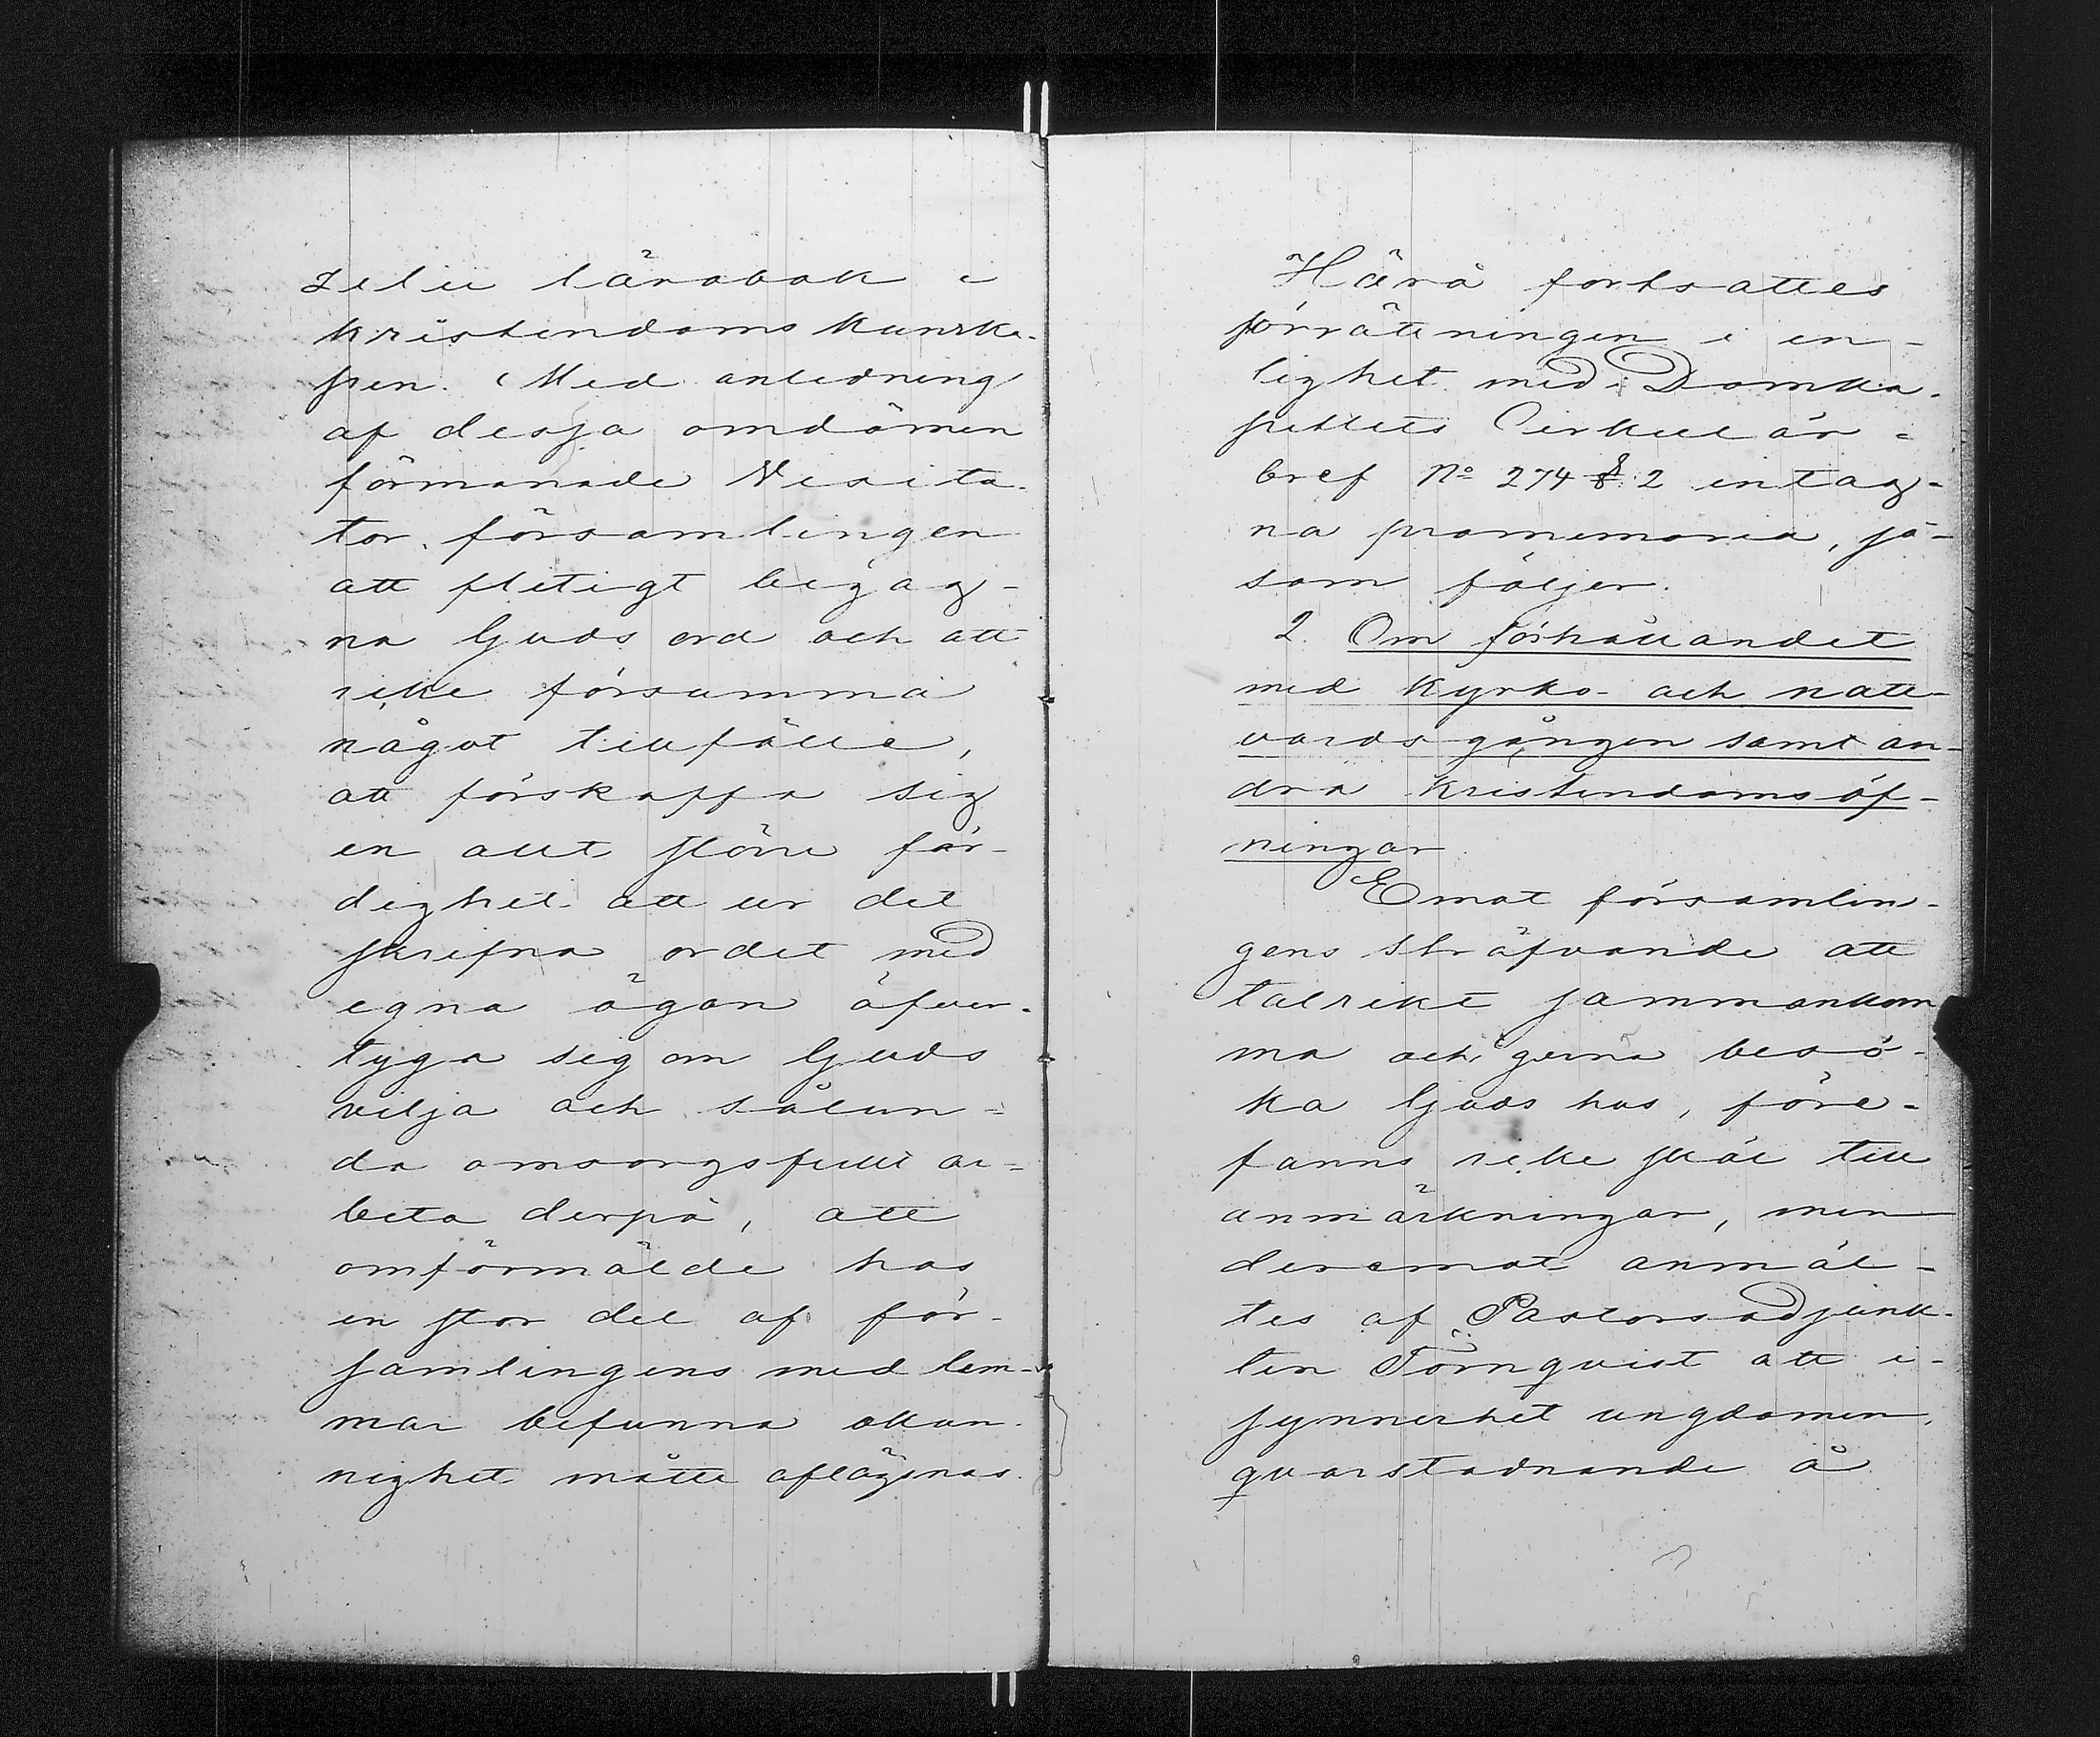 zelii lärobok i
kristendomskunska-
pen. Med anledning
af dessa omdömen
förmanade Visita-
tor församlingen
att flitigt begag-
na Guds ord och att
icke försumma
något tillfälle,
att förskaffa sig
en allt större fär-
dighet att ur det
skrifna ordet med
egna ögon öfver-
tyga sig om Guds
vilja och sålun-
da omsorgsfullt ar-
beta derpå, att
omförmälde hos
en stor del af för-
samlingens medlem-
mar befunna okun-
nighet måtte aflägsnas.
Härå fortsattes
förrättningen i en-
lighet med Domka-
pitlets Cirkulär-
bref No 274 § 2 intag-
na promemoria, så-
som följer.
2. Om förhållandet
med kyrko- och natt-
vardsgången samt an-
dra kristendomsöf-
ningar.
Emot församlin-
gens sträfvande att
talrikt sammankom
ma och gerna besö-
ka Guds hus, före-
fanns icke skäl till
anmärkningar, men
deremot anmäl-
tes af Pastorsadjunk-
ten Törnqvist att i-
synnerhet ungdomen,
qvarstadnande å